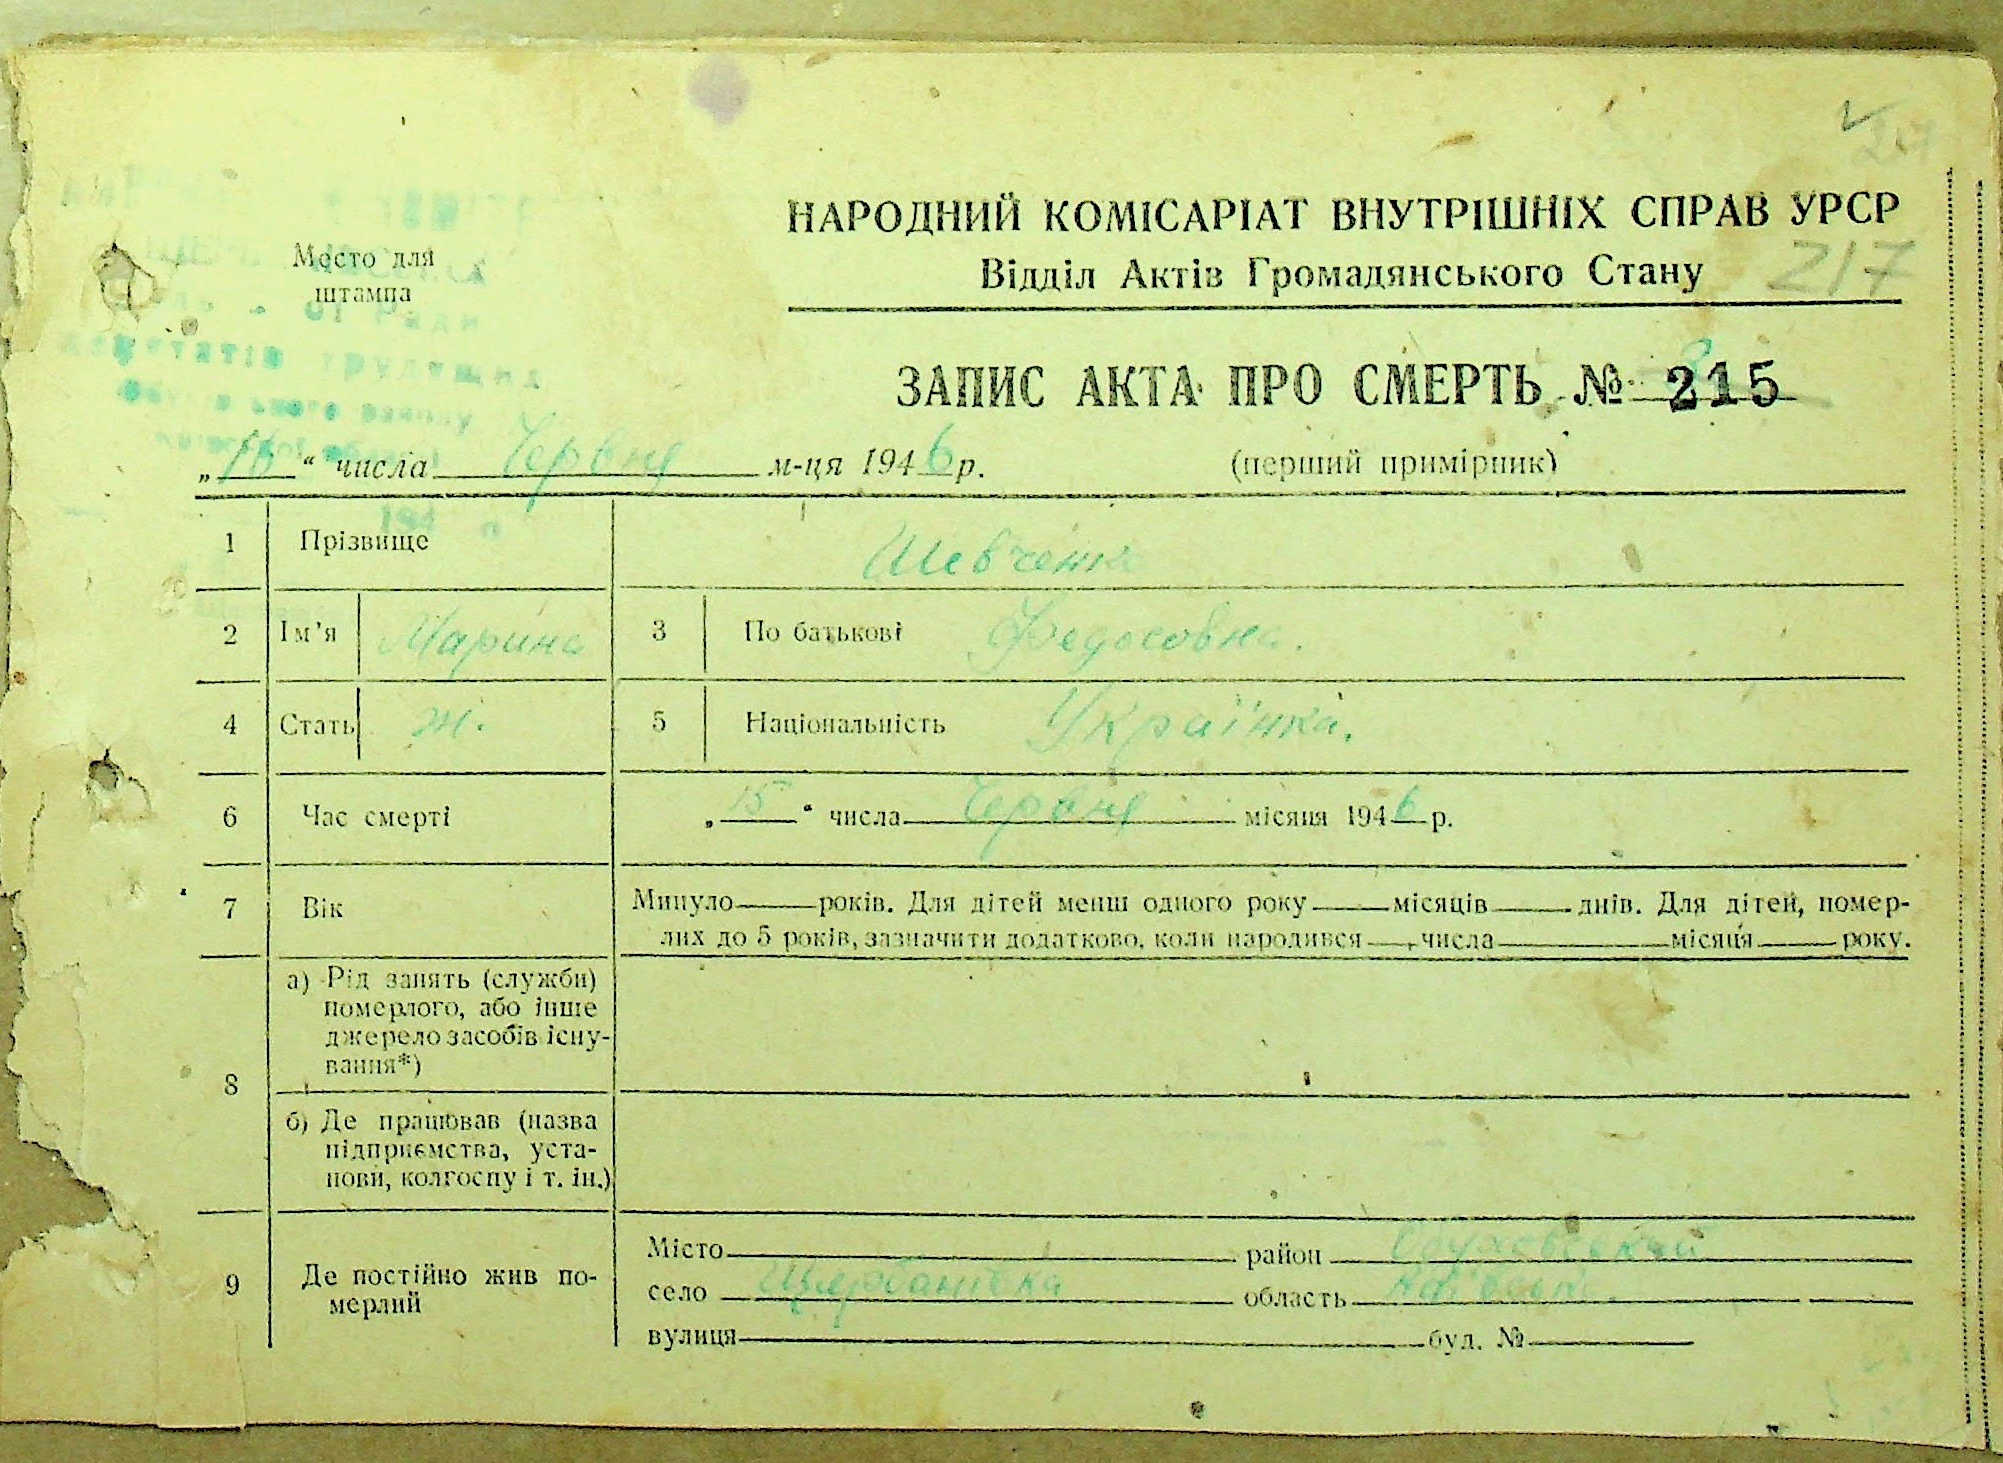 217
НАРОДНИЙ КОМІСАРІАТ ВНУТРІШНІХ СПРАВ УРСР
Відділ Актів Громадянського Стану
Место для
штампа
Ради
депутатів трудящих
ЗАПИС АКТА ПРО СМЕРТЬ № 215
„16“ числа Червня м-ця 1946 р. (перший примірник)
194 р
1 Прізвище Шевченко
2 Ім'я Марина 3 По батькові Федосовна.
4 Стать ж. 5 Національність Українка.
6 Час смерті „15“ числа Червня місяця 1946 р.
7 Вік Минуло років. Для дітей менш одного року місяців днів. Для дітей, помер-
лих до 5 років, зазначити додатково, коли народився числа місяця року.
8 а) Рід занять (служби)
померлого, або інше
джерело засобів існу-
вання*)
б) Де працював (назва
підприємства, уста-
нови, колгоспу і т. ін.)
9 Де постійно жив по-
мерлий
Місто район Обуховський
село Щербанівка область
вулиця буд. №